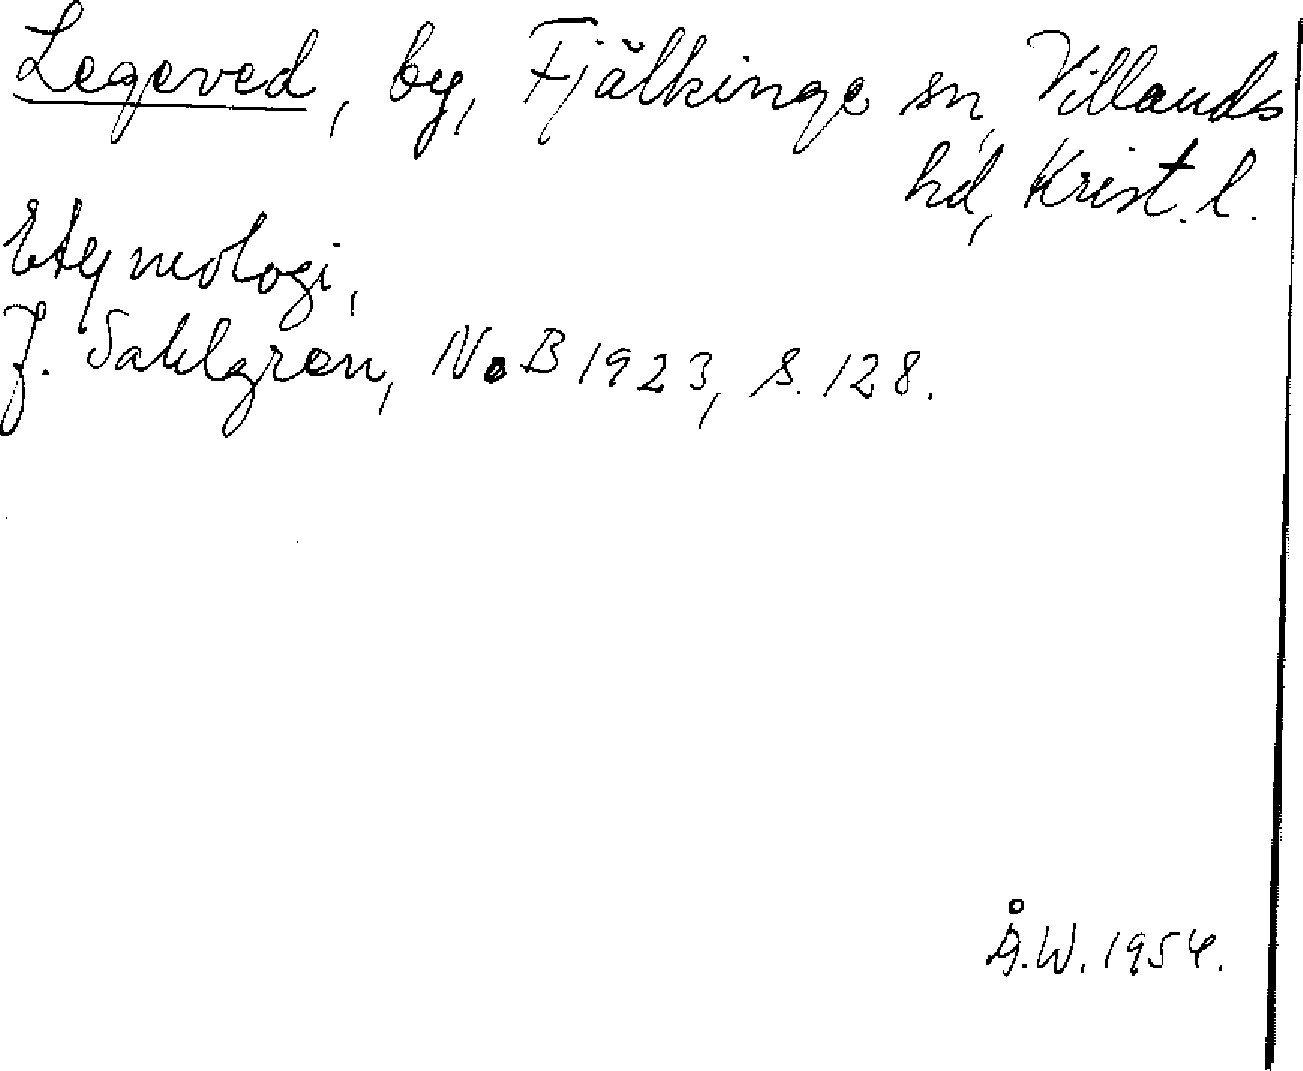 Legeved, by, Fjälkinge sn, Villands
hd, Krist. l.
Etymologi,
J. Sahlgren, NoB 1923, s. 128.
Å.W. 1954.